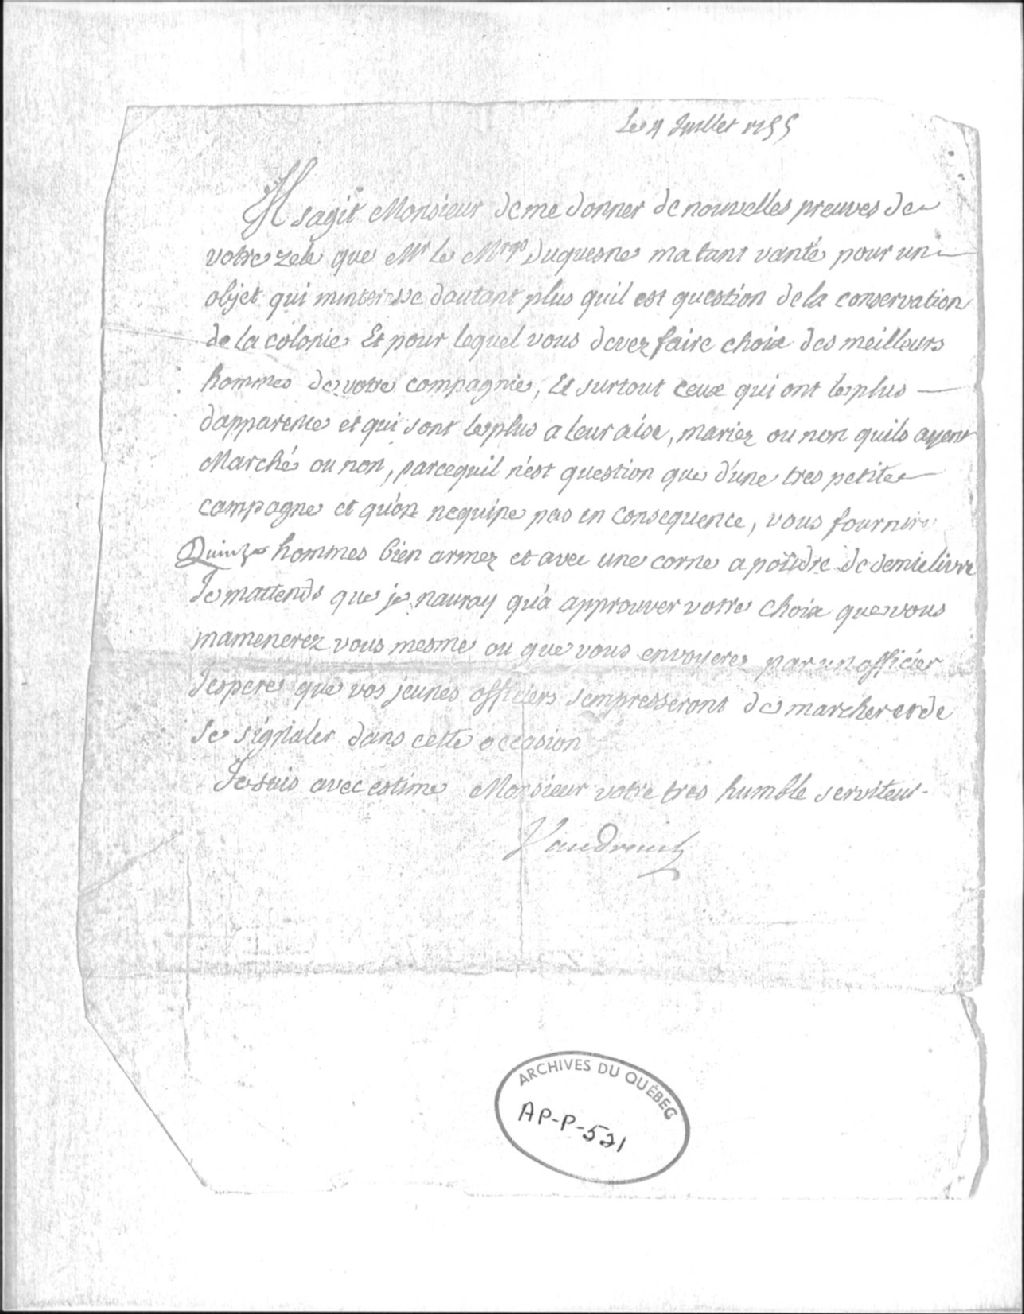 Le 4 Juillet 1755
Il sagit Monsieur de me donner de nouvelles preuves de
votre zele que Mr le Mrqs Duquesne ma tant vanté pour un
objet qui minteresse dautant plus quil est question de la conservation
de la colonie Et pour lequel vous devez faire choix des meilleurs
hommes de votre compagnie, Et surtout ceux qui ont le plus
dapparence et qui sont le plus a leur aise, mariez ou non quils ayent
Marché ou non, parcequil n'est question que d'une tres petite
campagne et qu'on nequipe pas en consequence, vous fournire
Quinze hommes bien armez et avec une corne a poudre de demie livre
Je mattends que je nauray qu'a approuver votre choix que vous
mamenerez vous mesme ou que vous envoyeres par un officier
Jespere que vos jeunes officiers sempresseront de marcher et de
se signaler dans cette occasion
Je suis avec estime Monsieur votre tres humble serviteur
Vaudreuil
ARCHIVES DU QUÉBEC
AP-P-521